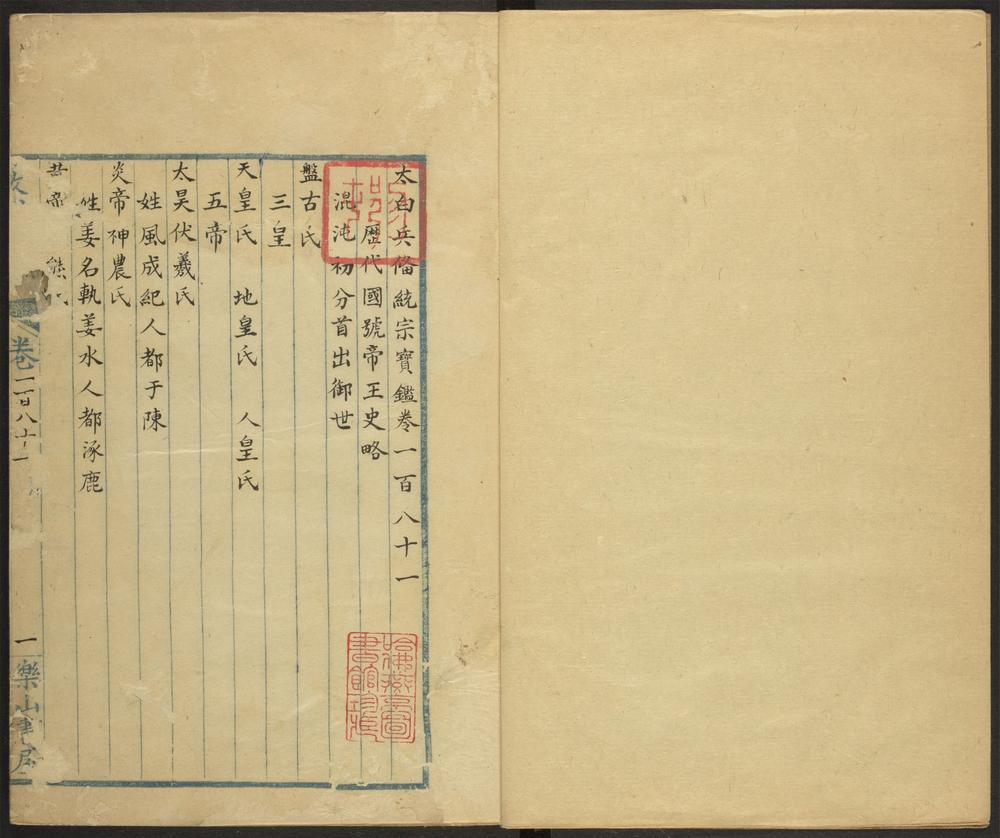 太白兵備統宗寶鑑卷一百八十一
歷代國號帝王史略
混沌初分首出御世
盤古氏
三皇
天皇氏 地皇氏 人皇氏
五帝
太昊伏羲氏
姓風成紀人都于陳
炎帝神農氏
姓姜名軌姜水人都涿鹿
帝
卷一百八十一
一
樂山
哈佛燕京圖書館珍藏